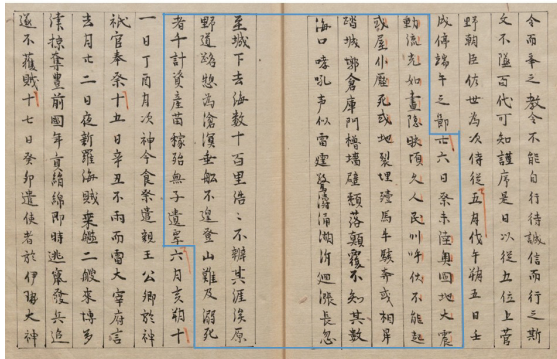 今而奉之教令不能自行待誠信而行之斯
文不墜百代可知謹序是日以從五位上菅
野朝臣佐世為次侍從五月戊午朔五日壬
戌停端午之節廿六日癸未陸奥國地大震
動流光如晝隠映頃之人民叫呼伏不能起
或屋仆壓死或地裂埋殪馬牛駭奔或相昇
踏城郭倉庫門櫓墻壁頽落顛覆不知其数
海口哮吼声似雷霆驚濤涌潮泝洄漲長忽
至城下去海数十百里浩々不辨其涯涘原
野道路惣為滄溟乗船不遑登山難及溺死
者千計資産苗稼殆無孑遺矣六月亥朔十
一日丁酉月次神今食祭遣親王公卿於神
祇官奉祭十五日辛丑不雨而雷大宰府言
去月廿二日夜新羅海賊乗艦二艘来博多
津掠奪豊前國年貢絹綿即時逃竄發兵追
遂不獲賊十七日癸卯遣使者於伊勢大神